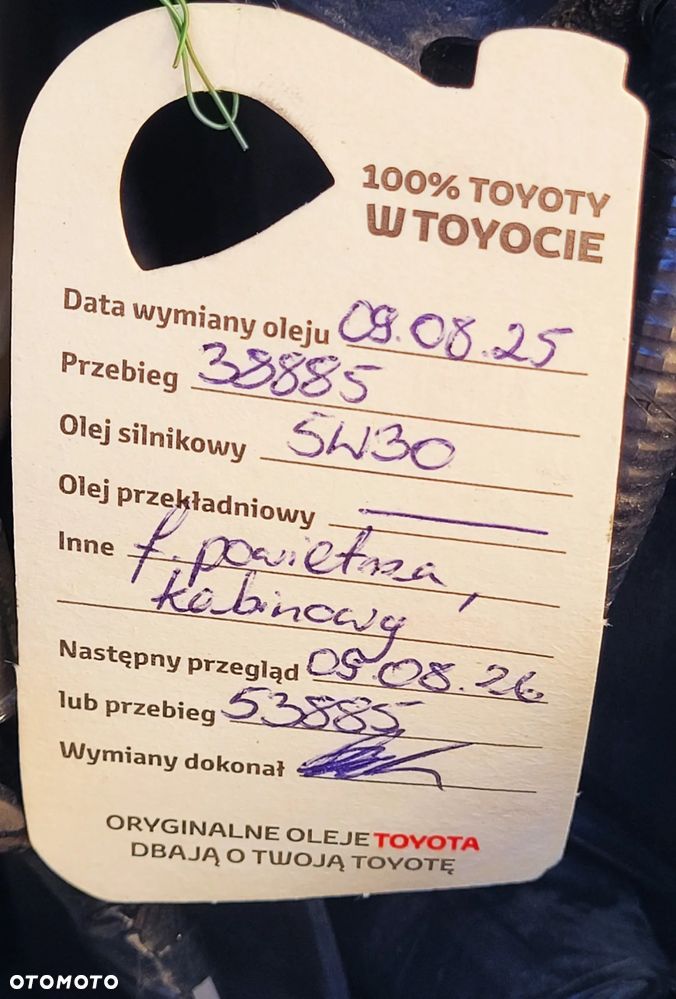 100% TOYOTY
W TOYOCIE
Data wymiany oleju 09.08.25
Przebieg 38885
Olej silnikowy 5W30
Olej przekładniowy —
Inne f. powietrza,
kabinowy
Następny przegląd 09.08.26
lub przebieg 53885
Wymiany dokonał
ORYGINALNE OLEJE TOYOTA
DBAJĄ O TWOJĄ TOYOTĘ
OTOMOTO